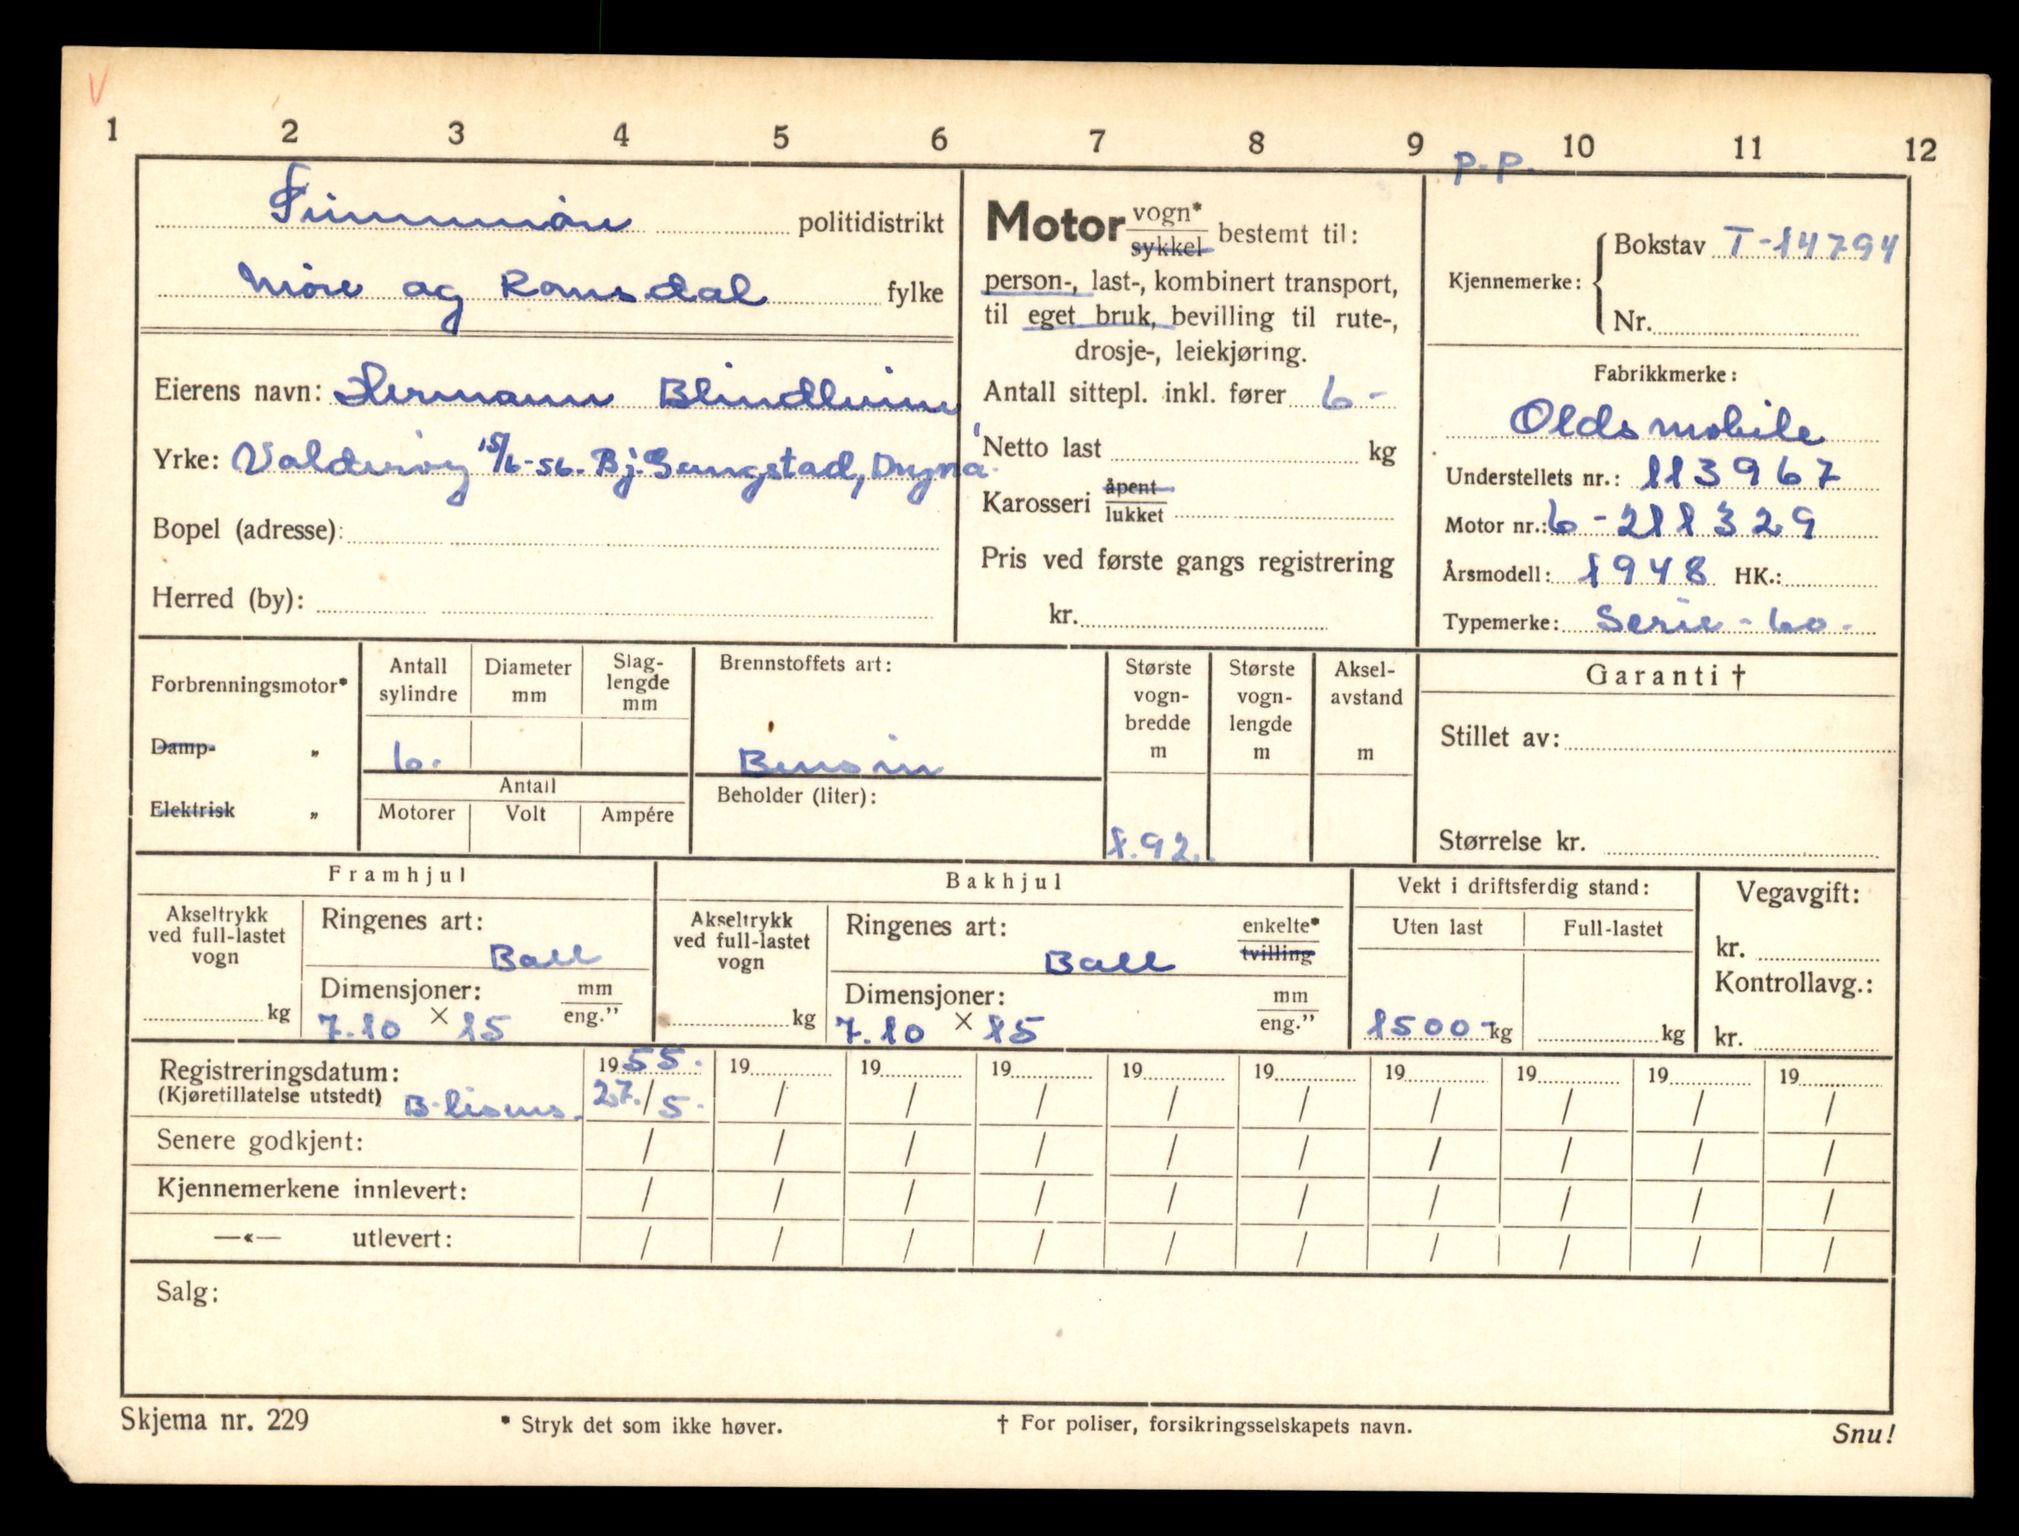 V
1 2 3 4 5 6 7 8 9 10 11 12
P.P.
Sunnmøre politidistrikt
Møre og Romsdal fylke
Eierens navn: Hermann Blindheim
Yrke: Valderøy 15/6-56. Bj. Gangstad, Dryna.
Bopel (adresse):
Herred (by):
Motor vogn* sykkel bestemt til:
person-, last-, kombinert transport,
til eget bruk, bevilling til rute-,
drosje-, leiekjøring.
Antall sittepl. inkl. fører 6-
Netto last kg
Karosseri åpent lukket
Pris ved første gangs registrering
kr.
Kjennemerke: Bokstav T-14794
Nr.
Fabrikkmerke:
Oldsmobile
Understellets nr.: 113967
Motor nr.: 6-211329
Årsmodell: 1948 HK.:
Typemerke: Serie-60-
Forbrenningsmotor*
Damp- „
Elektrisk „
Antall sylindre
Diameter mm
Slag-lengde mm
6.
Antall
Motorer Volt Ampére
Brennstoffets art:
Bensin
Beholder (liter):
Største vogn-bredde m
1.92.
Største vogn-lengde m
Aksel-avstand m
Garanti †
Stillet av:
Størrelse kr.
Framhjul
Akseltrykk ved full-lastet vogn
kg
Ringenes art:
Ball
Dimensjoner: mm eng.”
7.10 × 15
Bakhjul
Akseltrykk ved full-lastet vogn
kg
Ringenes art: enkelte* tvilling
Ball
Dimensjoner: mm eng.”
7.10 × 15
Vekt i driftsferdig stand:
Uten last Full-lastet
1500- kg kg
Vegavgift:
kr.
Kontrollavg.:
kr.
Registreringsdatum: 1955. 19 19 19 19 19 19 19 19 19
(Kjøretillatelse utstedt) B-lisens. 27./5. / / / / / / / / /
Senere godkjent: / / / / / / / / / /
Kjennemerkene innlevert: / / / / / / / / / /
—«— utlevert: / / / / / / / / / /
Salg:
Skjema nr. 229 * Stryk det som ikke høver. † For poliser, forsikringsselskapets navn. Snu!